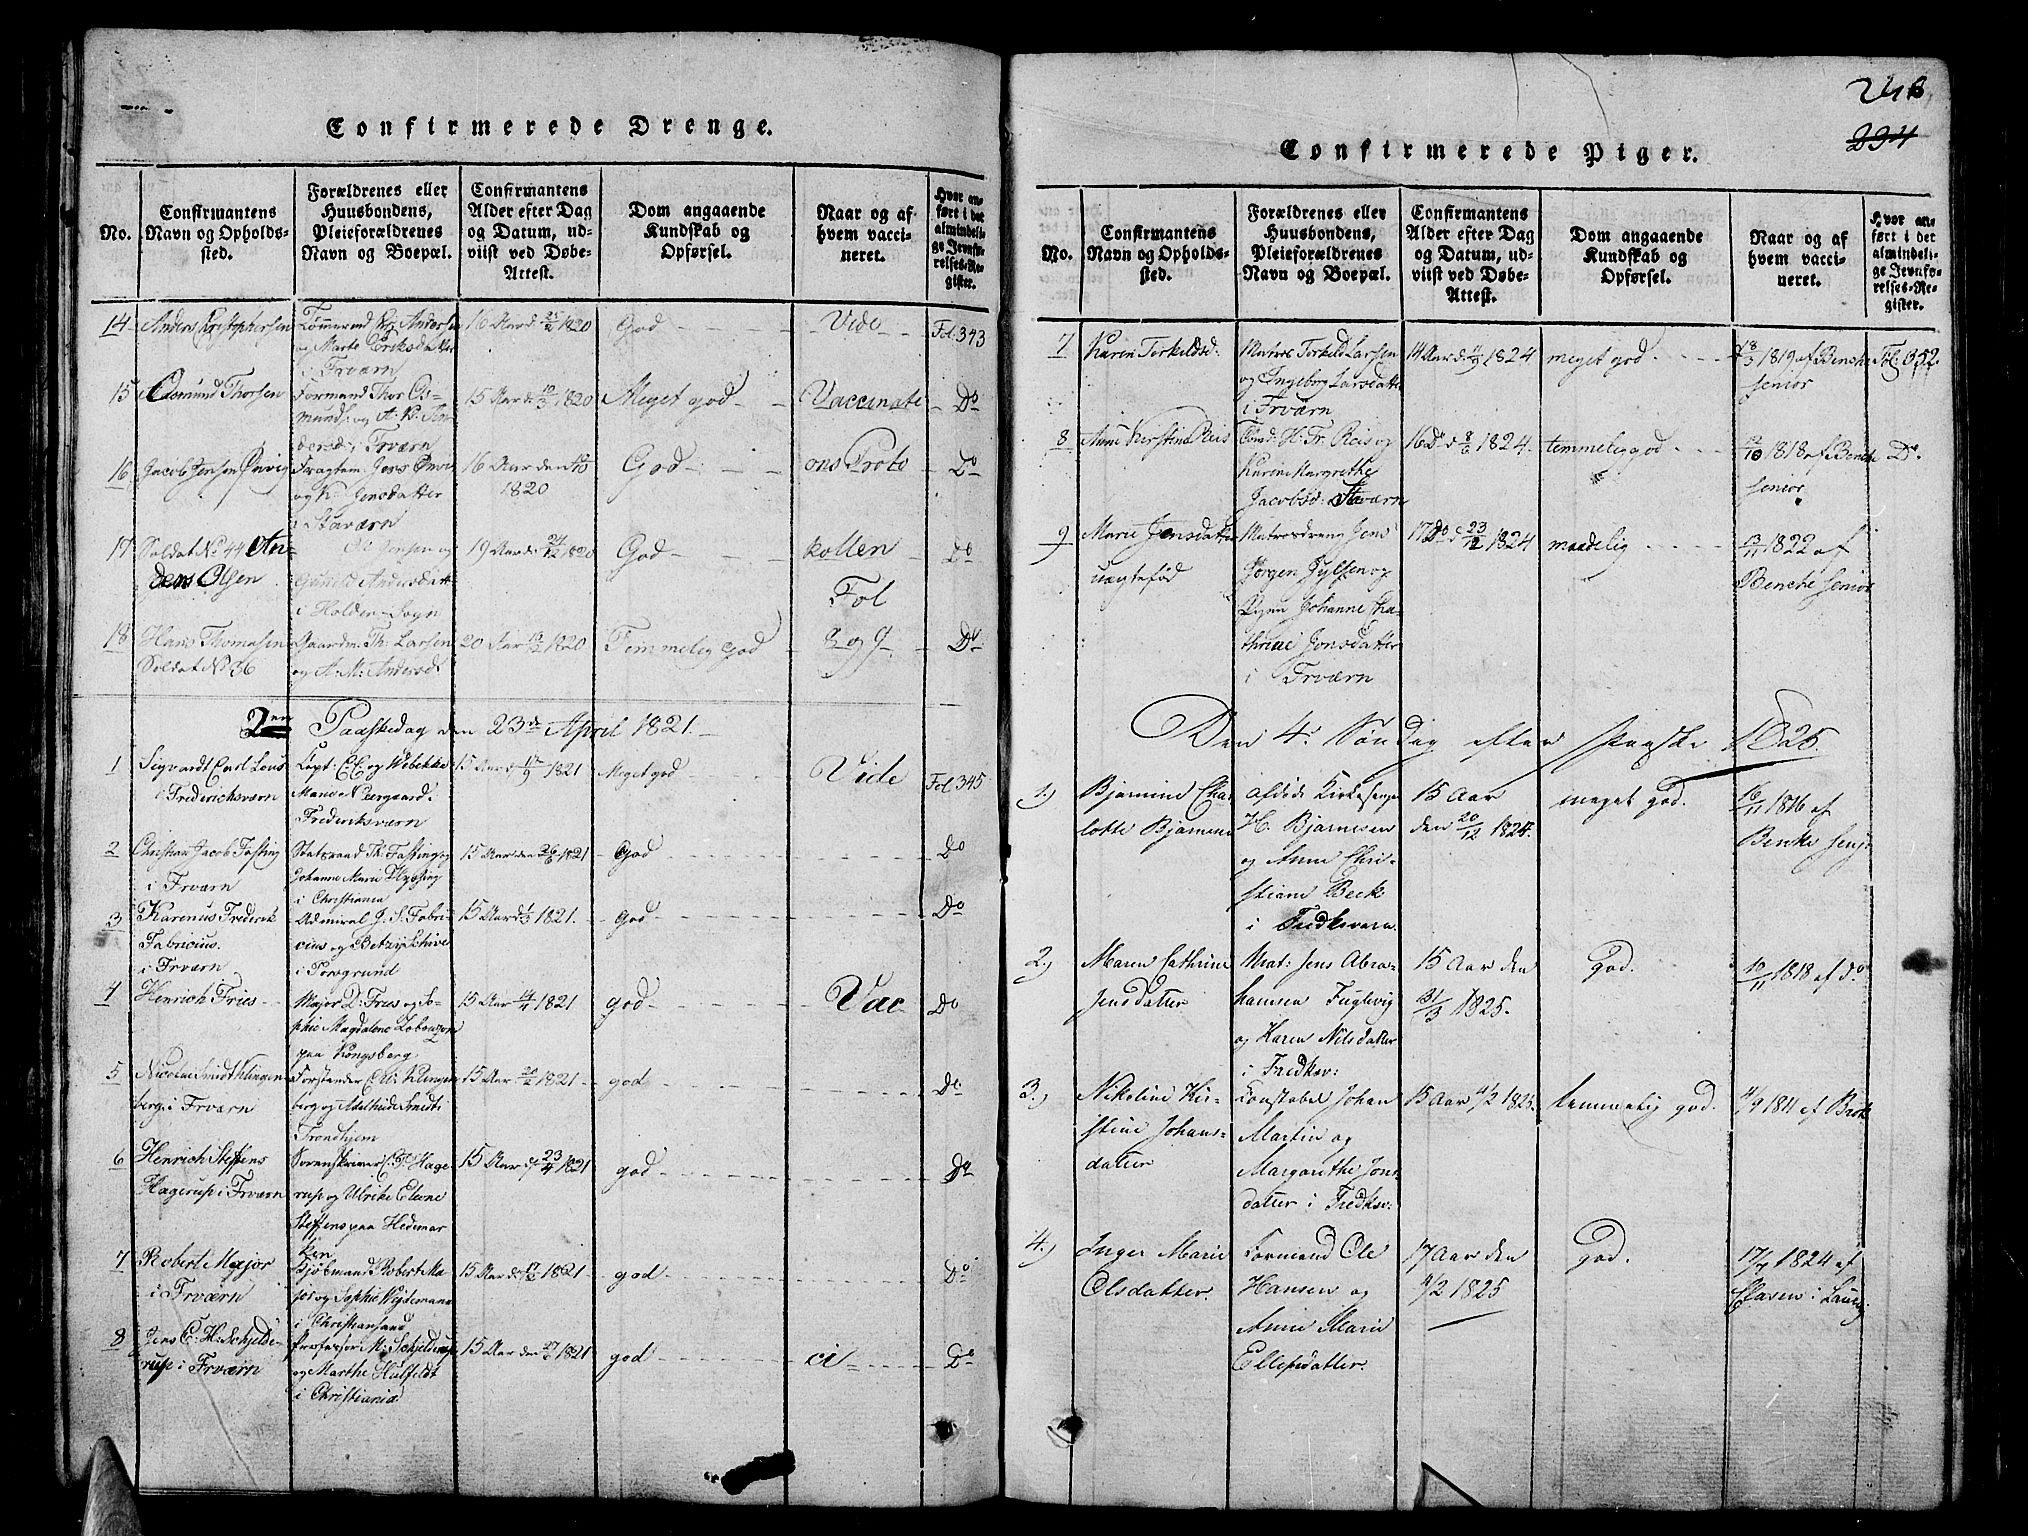 Confirmerede Drenge.
No.
Confirmantens
Navn og Opholds-
sted.
Forældrenes eller
Huusbondens,
Pleieforældrenes
Navn og Boepæl.
Confirmantens
Alder efter Dag
og Datum, ud-
viist ved Døbe-
Attest.
Dom angaaende
Kundskab og
Opførsel.
Naar og af
hvem vacci-
neret.
Hvor an-
ført i det
almindeli-
ge Jevnfø-
relses-Re-
gister.
14
Anders Kristophersen
Tømmermd Kr. Andersen
og Marte Eriksdatter
i Frværn
16 Aar d 25/2 1820
God
Vide
Fol 343
15
Osmund Thorsen
Formand Thor Os-
munds: og A. K. An-
dersd: i Frværn
15 Aar d 10/3 1820
Meget god
Vaccinati
Do
16
Jacob Jensen Önvig
Fragtem: Jens Önvig
og K. Jensdatter
i Staværn
16 Aar den
1820
God
ons Proto
Do
17
Soldat No 44 An-
ders Olsen
Ole Jensen og
Gunild Andersdatt
i Holden Sogn
19 Aar d 24/12 1820
God
kollen
Fol
Do
18
Hans Thomasen
Soldat No 36
Gaardm: Th. Larsen
og A: M: Andersd
20 Aar 1820
Temmelig god
Do
2den Paaskedag den 23de April 1821.
1
Sigvardt Carl
i Frederichsværn
Capt: C. C. og Webekke
Marie Neergaard i
Frederiksværn
15 Aar d 17/9 1821
Meget god
Vide
Fol 345
2
Christian Jacob Fasting
i Frværn
Statsraad Th: Fasting og
Johanne Marie Flysing
i Christiania
15 Aar den 26 1821
God
Do
3
Karenus Frederik
Fabricius.
i Frværn
Admiral J. S. Fabri-
cius og Betzy Schive
i Porsgrund
15 Aar d 1/3 1821.
God
Do
4
Henrich Fries
Major D: Fries og So-
phie Magdalene
paa Kongsberg
15 Aar 14/4 1821
god
Vac
Do
5
Nicolai Smidt Klingen-
berg i Frværn
Forstander Klingen-
berg og Adelheide Smidt i
Trondhjem
15 Aar 20/2 1821
god
Do
6
Henrich Steffens
Hagerup i Frværn
Sorenskriver C. F. Hage-
rup og Ulrike Elene
Steffens paa Hedemar
ken
15 Aar d 23/4 1821
god
Do
7
Robert Major
i Frværn
Kjøbmand Robert Ma-
jor og Sophie Weidemann
i Christiansand
15 Aar d 1821
god
Do
8
Jens C. H. Schjelde-
rup i Frværn
Professor M: Schjelderup
og Marthe Hulfeldt
i Christiania
15 Aar den 27 1821
god
ci
Do
246
234
Confirmerede Piger.
No.
Confirmantens
Navn og Opholds-
sted.
Forældrenes eller
Huusbondens,
Pleieforældrenes
Navn og Boepæl.
Confirmantens
Alder efter Dag
og Datum, ud-
viist ved Døbe-
Attest.
Dom angaaende
Kundskab og
Opførsel.
Naar og af
hvem vacci-
neret.
Hvor an-
ført i det
almindeli-
ge Jevnfø-
relses-Re-
gister.
7
Karen Torkildsd.
Matros Torkild Larsen
og Ingeborg Larsdatter
i Frværn
14 Aar d 11/9 1824
meget god
18/3 1819 af Benche
senior
Fol: 352.
8
Anne Kirstine Reis
Tømd: H. Fr. Reis og
Karen Margrethe
Jacobsd: Staværn
16 Do d 8/6 1824.
temmelig god
12/10 1818 af Benche
senior
Do.
9
Marie Jensdatter
uægtefød
Matrosdreng Jens
Jørgen Jylsen og
Pigen Johanne Cha-
thrine Jonsdatter
i Frværn
17 Do d 23/12 1824
maadelig
13/11 1822 af
Benche senior
Den 4de Søndag efter Paaske 1825.
1.)
Bjarmine Char-
lotte Bjarnesen
afdøde Kirkesanger
H. Bjarnesen
og Anne Chri-
stiane Beck
i Fredksværn
15 Aar
den 20/12 1824.
meget god.
16/11 1816 af
Benche senjor
2.)
Maren Cathrine
Jensdatter
Mat: Jens Abra-
hamsen Fuglevig
og Karen Nilsdatter
i Fredksv:
15 Aar den
31/3 1825.
God.
10/11 1818 af Do
3.)
Nikoline Kir-
stine Johans-
datter
Constabel Johan
Martin og
Margrethe Jons-
datter i Fredksv:
15 Aar 4/2 1825.
temmelig god.
4/9 1811 af Brok
4.)
Inger Marie
Olsdatter.
Formand Ole
Hansen og
Anne Marie
Ellefsdatter.
17 Aar den
4/2 1825
God.
17/7 1824 af
Clasen i Laurv: